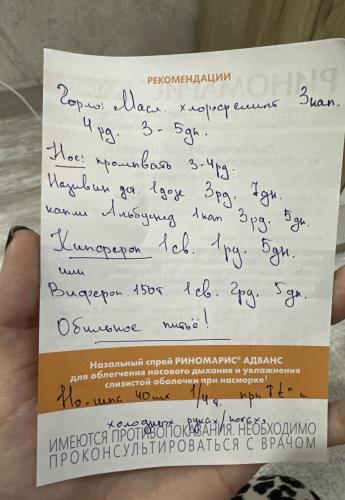 РЕКОМЕНДАЦИИ
Горло: Масл. хлорофиллипт 3 кап.
4 рд. 3-5 дн.
Нос: промывать 3-4 рд.
Називин дет. 1 доза 3 рд. 7 дн.
капли Альбуцид 1 кап 3 рд. 5 дн.
Кипферон 1 св. 1 рд. 5 дн.
или
Виферон 150т 1 св. 2 рд. 5 дн.
Обильное питьё!
Назальный спрей РИНОМАРИС® АДВАНС
для облегчения носового дыхания и увлажнения
слизистой оболочки при насморке¹
Но-шпа 40 мг 1/4 т. при ↑t° и
холодных руках/ногах.
ИМЕЮТСЯ ПРОТИВОПОКАЗАНИЯ. НЕОБХОДИМО
ПРОКОНСУЛЬТИРОВАТЬСЯ С ВРАЧОМ